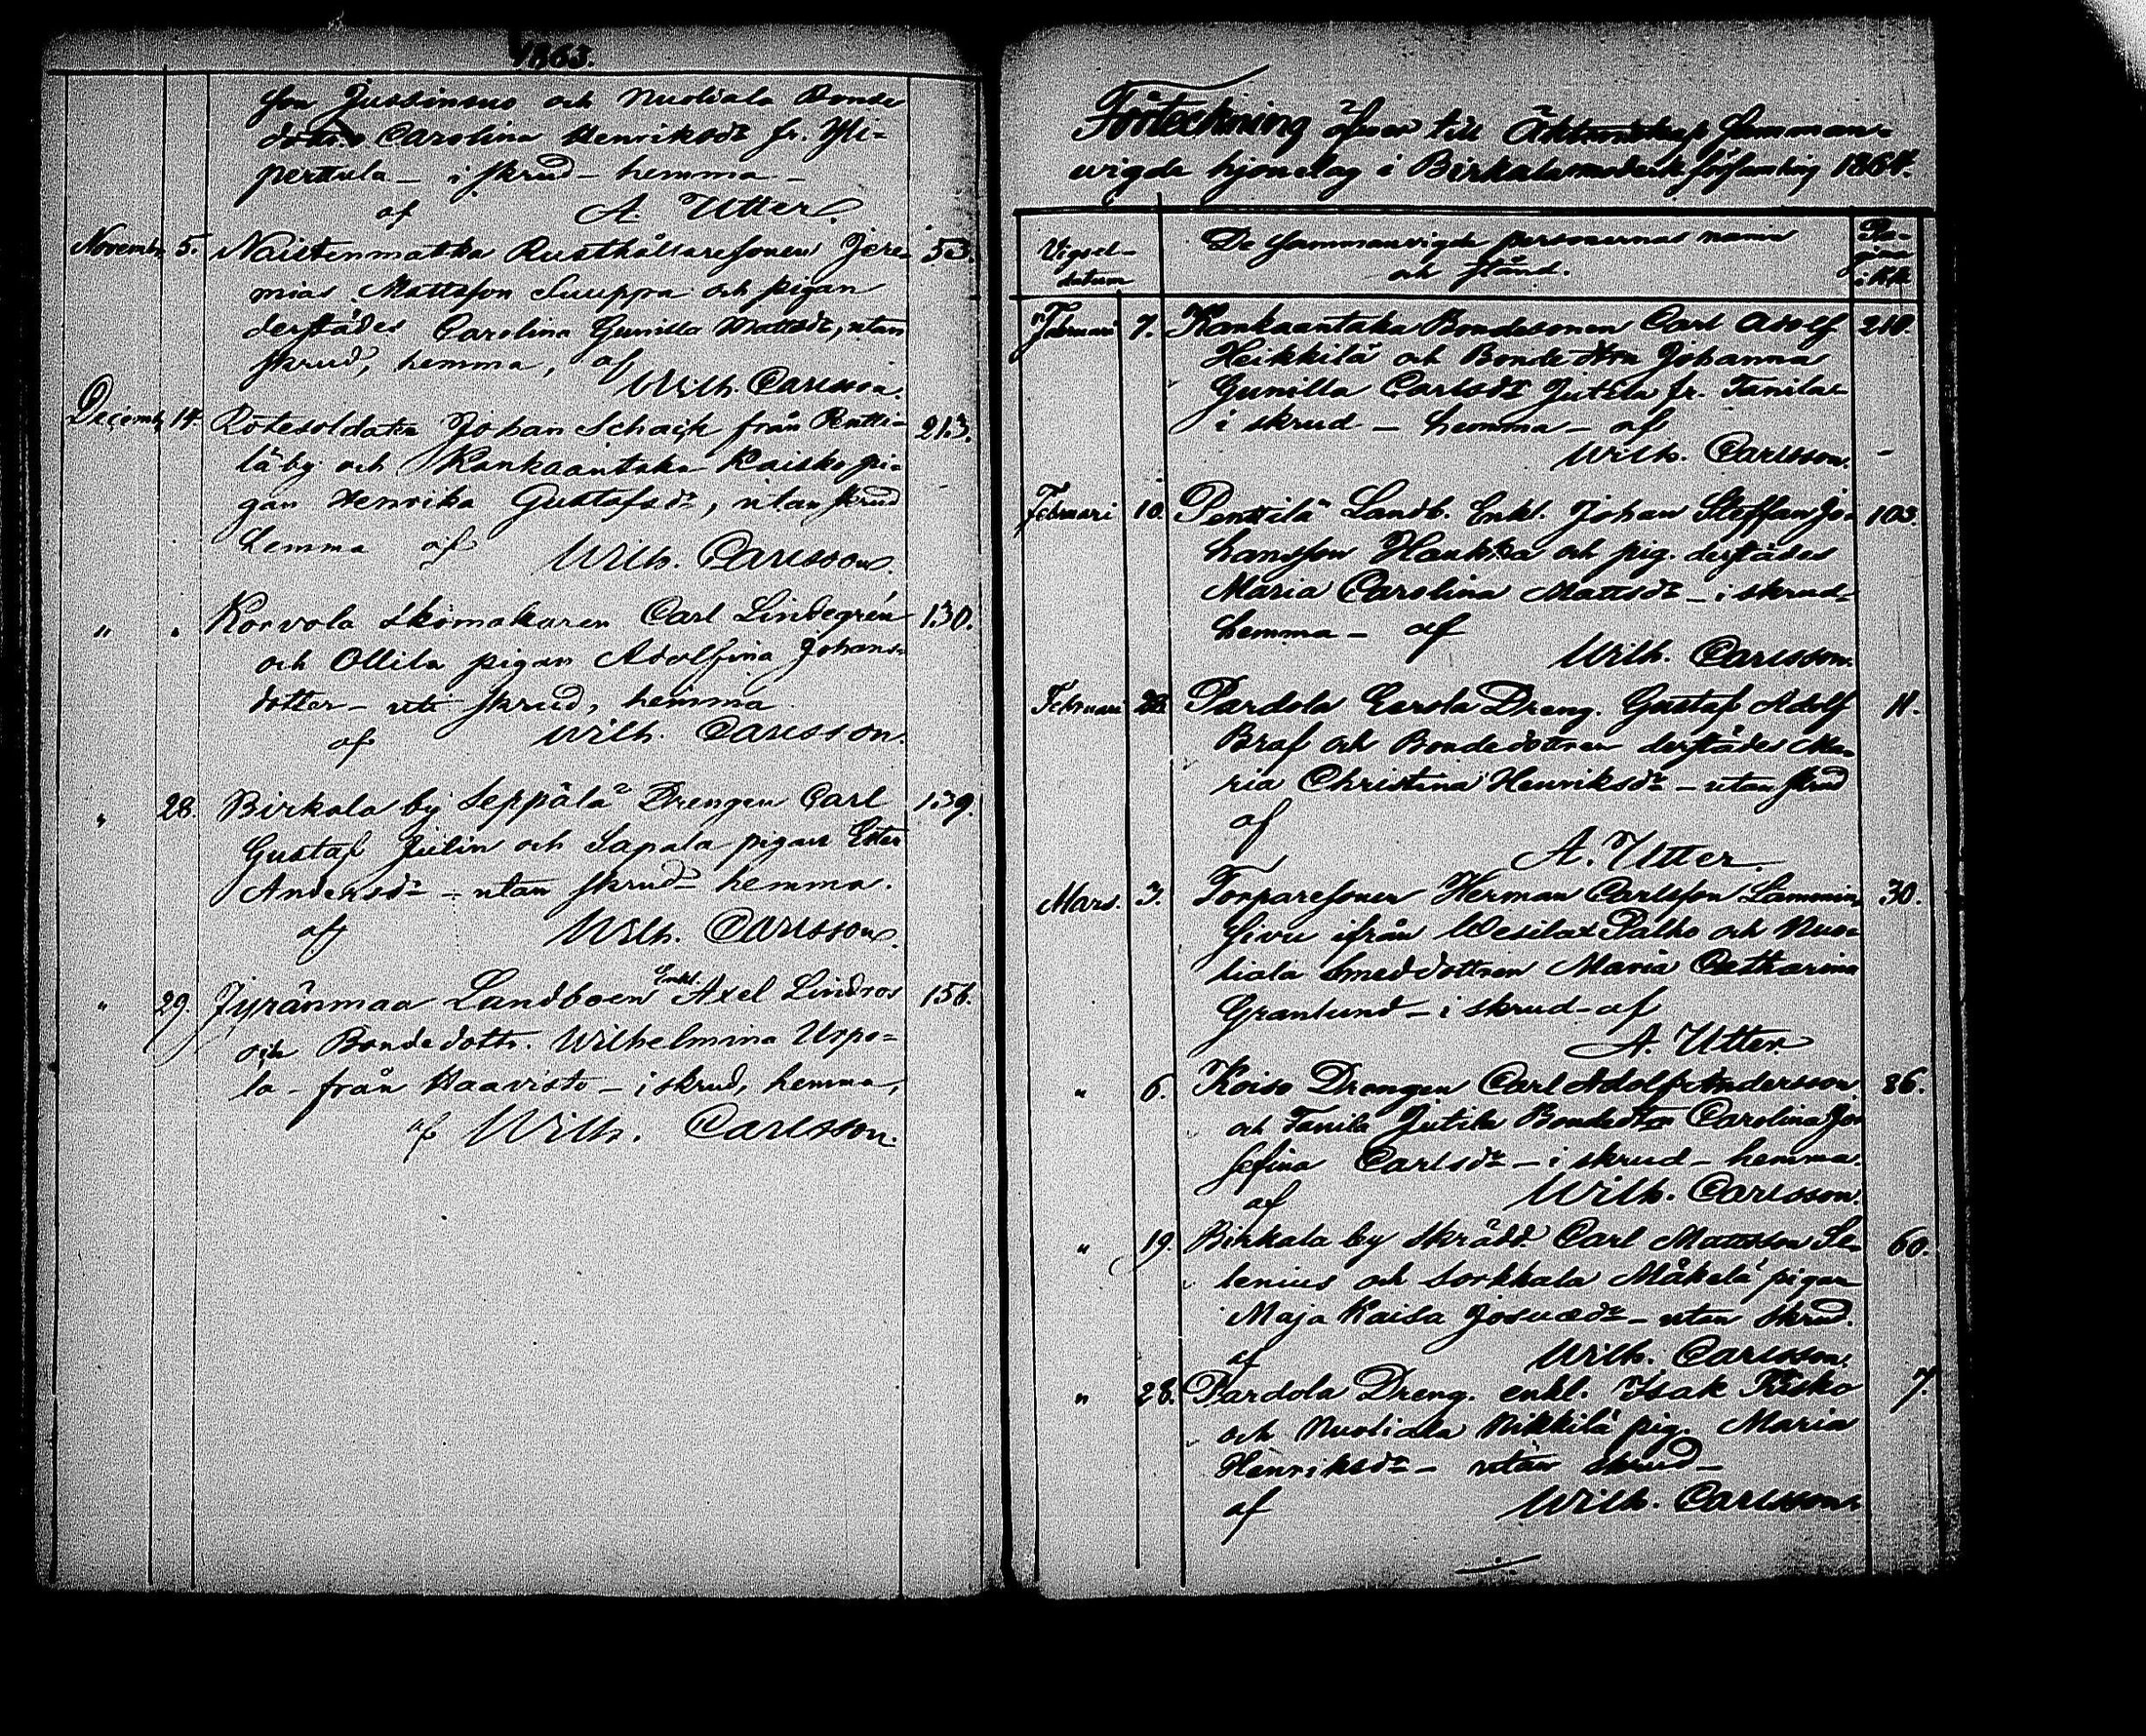 1863.
son Jussinsuo och Nuoliala Bonde
dottr. Carolina Henriksdr fr. Yli-
perttula - i skrud - hemma -
af A. Utter.
Novembr 5. Naistenmatka Rusthållaresonen Jere- 53.
mias Mattsson Suuppa och pigan
derstädes Carolina Gunilla Mattsdr, utan
skrud, hemma, af
Wilh. Carlsson.
Decemb. 14. Rotesoldaten Johan Schaik från Pentti- 213.
lä by och Kankaantaka Kaisko pi-
gan Henrika Gustafsdr, utan skrud
hemma af Wilh. Carlsson.
" " Korvola Skomakaren Carl Lindegrén 130.
och Ollila pigan Adolfina Johans-
dotter - uti skrud, hemma
af Wilh. Carlsson.
" 28. Birkala by Seppälä Drengen Carl 139.
Gustaf Julin och Sapala pigan Ester
Andersdr - utan skrud - hemma.
af Wilh. Carlsson.
" 29. Jyränmaa Landboen Enkl. Axel Lindros 156.
och Bondedottr. Wilhelmina Urpo-
la - från Haavisto - i skrud, hemma,
af Wilh. Carlsson.
Förteckning öfver till Äktenskap samman-
vigde hjonelag i Birkala moderkförsamling 1864.
Vigsel- De sammanvigde personernas namn Pa-
datum och stånd. gina
i KB
Februari 7. Kankaantaka Bondesonen Carl Adolf 210.
Heikkilä och Bonde dtrn Johanna
Gunilla Carlsdr Jutila fr. Tanila-
i skrud - hemma - af
Wilh. Carlsson.
Februari 10. Penttilä Landb. Enkl. Johan Steffan Jo- 103.
hansson Haukka och pig. derstädes
Maria Carolina Mattsdr - i skrud-
hemma - af
Wilh. Carlsson.
Februari Pardola Eerola Dreng. Gustaf Adolf 11.
Braf och Bondedottren derstädes Ma-
ria Christina Henriksdr - utan skrud
af
A. Utter.
Mars. 3. Torparesonen Herman Carlsson Lammin 30.
sivu ifrån Wesilax Palho och Nuo-
liala Smeddottren Maria Catharina
Granlund - i skrud - af
A. Utter.
" 6. Koiso Drengen Carl Adolf Andersson 86.
och Tanila Jutila Bondedtrn Carolina Jo
sefina Carlsdr - i skrud - hemma.
af Wilh. Carlsson.
" 19. Birkala by Skrädd. Carl Mattsson Se- 60.
lenius och Sorkkala Mäkelä pigan
Maja Kaisa Josuædr - utan skrud.
af Wilh. Carlsson.
" 28. Pardola Dreng. enkl. Isak Kisko 7.
och Nuoliala Nikkilä pig. Maria
Henriksdr - utan skrud -
af Wilh. Carlsson.